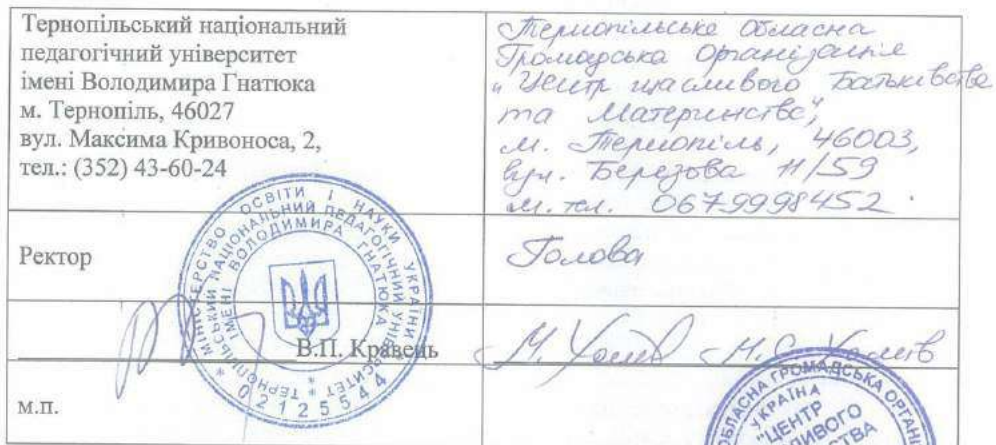 Тернопільський національний
педагогічний університет
імені Володимира Гнатюка
м. Тернопіль, 46027
вул. Максима Кривоноса, 2,
тел.: (352) 43-60-24
Тернопільська Обласна
Громадська Організація
„Центр щасливого Батьківства
та Материнства",
м. Тернопіль, 46003,
вул. Березова 11/59
м. тел. 0679998452.
Ректор
Голова
В.П. Кравець
М.
м.п.
МІНІСТЕРСТВО ОСВІТИ І НАУКИ УКРАЇНИ
ТЕРНОПІЛЬСЬКИЙ НАЦІОНАЛЬНИЙ ПЕДАГОГІЧНИЙ УНІВЕРСИТЕТ
ІМЕНІ ВОЛОДИМИРА ГНАТЮКА
* 02125544 *
ОБЛАСНА ГРОМАДСЬКА ОРГАН
УКРАЇНА
"ЦЕНТР
ЛИВОГО
СТВА